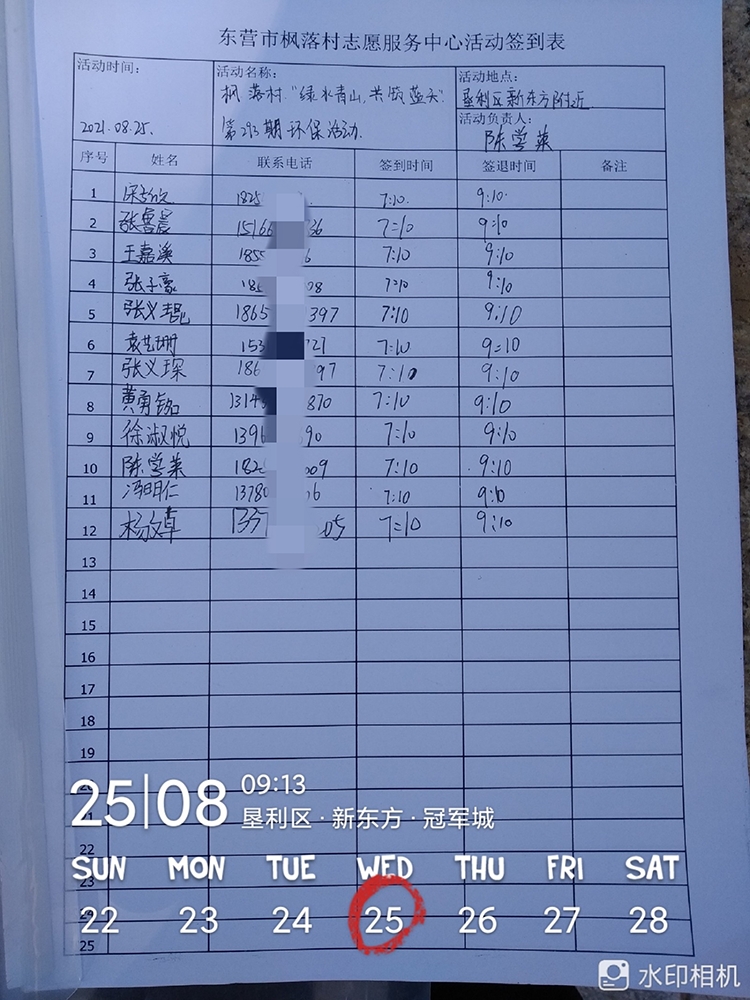 东营市枫落村志愿服务中心活动签到表
活动时间: 活动名称: 活动地点:
枫落村"绿水青山,共筑蓝天" 垦利区新东方附近
2021.08.25. 第293期环保活动. 活动负责人: 陈学莱
序号 姓名 联系电话 签到时间 签退时间 备注
1 1825 7:10. 9:10.
2 张鲁晨 1516 36 7=10 9:10
3 王嘉溪 185 6 7:10 9:10
4 张子豪 18 08 7:10 9:10
5 张义琨 1865 397 7:10 9:10
6 袁艺珊 153 727 7:10 9=10
7 张义琛 186 97 7:10 9:10
8 黄勇铭 1314 870 7:10 9:10
9 徐淑悦 139 90 7:10 9:10
10 陈学莱 182 009 7:10 9:10
11 冯明仁 13780 6 7:10 9:10
12 杨文卓 1337 05 7=10 9:10
13
14
15
16
17
18
19
25|08 09:13
垦利区·新东方·冠军城
22
SUN MON TUE WED THU FRI SAT
23
22 23 24 25 26 27 28
25
水印相机